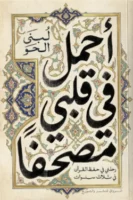 لبنى
الحو
أحمل
في قلبي
مصحفًا
رحلتي في حفظ القرآن
في ثلاث سنوات